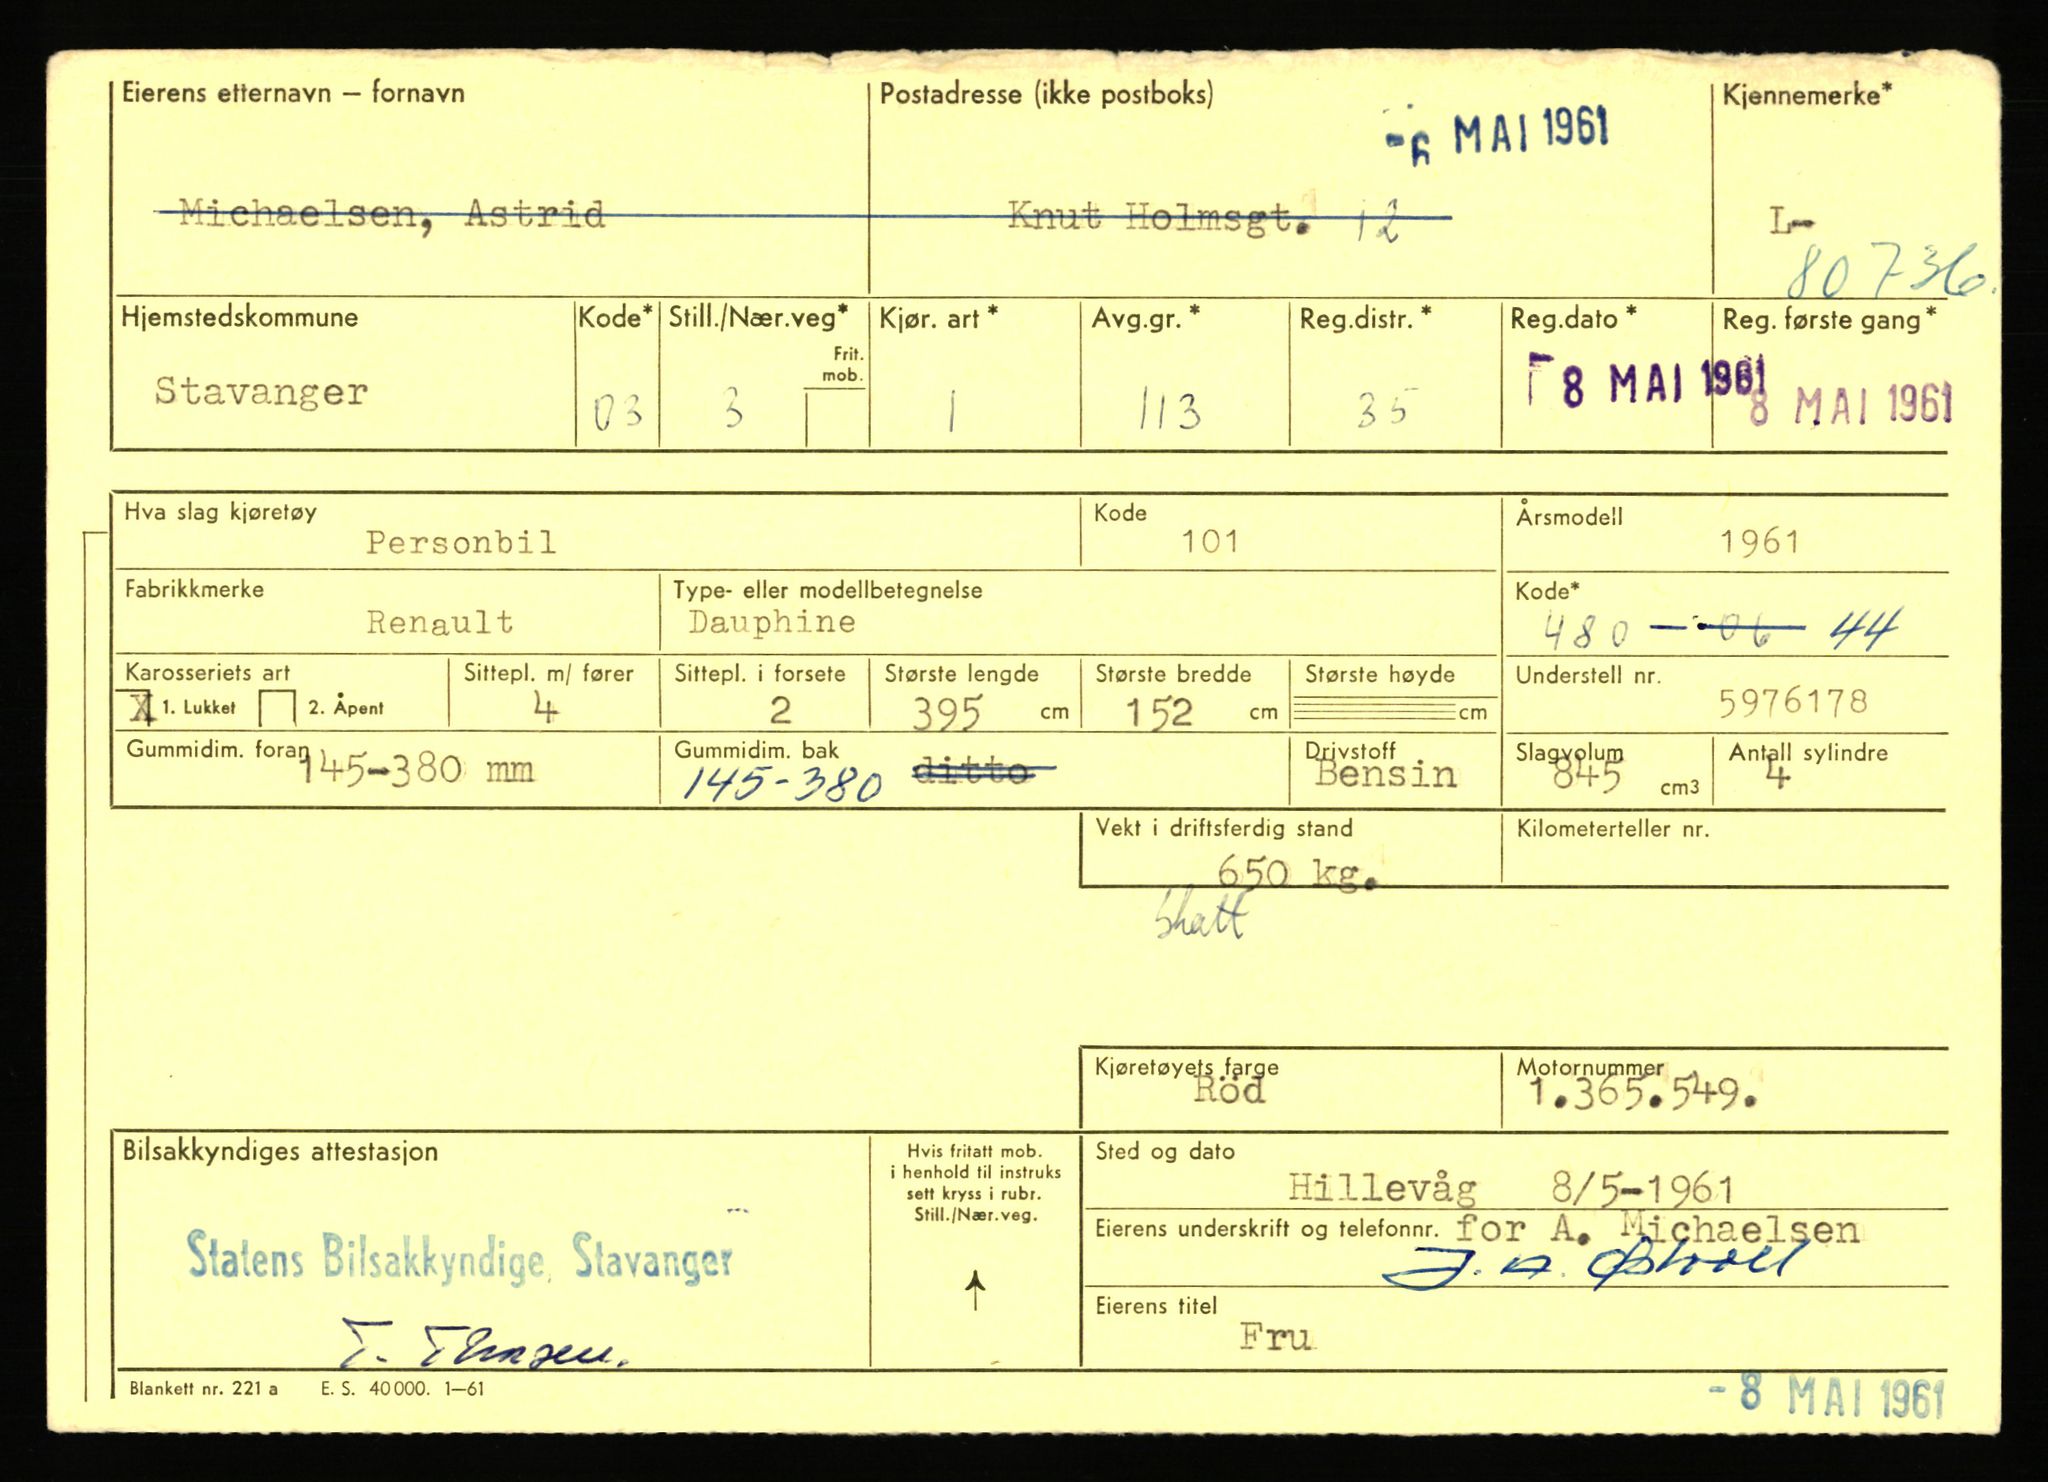 Eierens etternavn – fornavn
Postadresse (ikke postboks)
Kjennemerke*
MAI 1961
Michaelsen, Astrid
Knut Holmsgt. 12
L-
80736.
Hjemstedskommune
Kode*
Still./Nær.veg*
Frit.
mob.
Kjør. art *
Avg.gr. *
Reg.distr. *
Reg.dato *
Reg. første gang *
Stavanger
03
3
1
113
35
8 MAI 1961
8 MAI 1961
Hva slag kjøretøy
Personbil
Kode
101
Årsmodell
1961
Fabrikkmerke
Renault
Type- eller modellbetegnelse
Dauphine
Kode*
480 – 06 44
Karosseriets art
X 1. Lukket 2. Åpent
Sittepl. m/ fører
4
Sittepl. i forsete
2
Største lengde
395 cm
Største bredde
152 cm
Største høyde
cm
Understell nr.
5976178
Gummidim. foran
145-380 mm
Gummidim. bak
145-380 ditto
Drivstoff
Bensin
Slagvolum
845 cm3
Antall sylindre
4
Vekt i driftsferdig stand
650 kg.
Kilometerteller nr.
Skatt
Kjøretøyets farge
Röd
Motornummer
1.365.549.
Bilsakkyndiges attestasjon
Hvis fritatt mob.
i henhold til instruks
sett kryss i rubr.
Still./Nær.veg.
Sted og dato
Hillevåg 8/5-1961
Eierens underskrift og telefonnr. for A. Michaelsen
Statens Bilsakkyndige, Stavanger
Eierens titel
Fru
Blankett nr. 221 a E. S. 40000. 1–61
- 8 MAI 1961